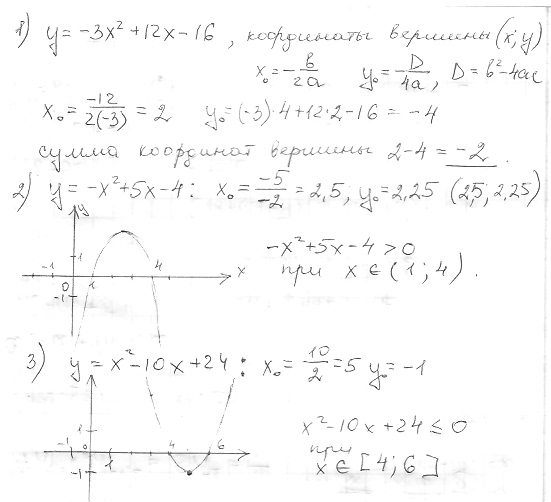 1) y = -3x² + 12x - 16 , координаты вершины (x; y)
x₀ = -b/2a   y₀ = -D/4a , D = b² - 4ac
x₀ = -12/2(-3) = 2   y₀ = (-3)·4 + 12·2 - 16 = -4
сумма координат вершины 2 - 4 = -2 .
2) y = -x² + 5x - 4 : x₀ = -5/-2 = 2,5 ; y₀ = 2,25 (2,5; 2,25)
y
-x² + 5x - 4 > 0
при x ∈ (1; 4) .
-1 0 1 1 4 x
-1
3) y = x² - 10x + 24 : x₀ = 10/2 = 5 y₀ = -1
x² - 10x + 24 ≤ 0
при
x ∈ [4; 6]
1
-1 0 1 4 6
-1